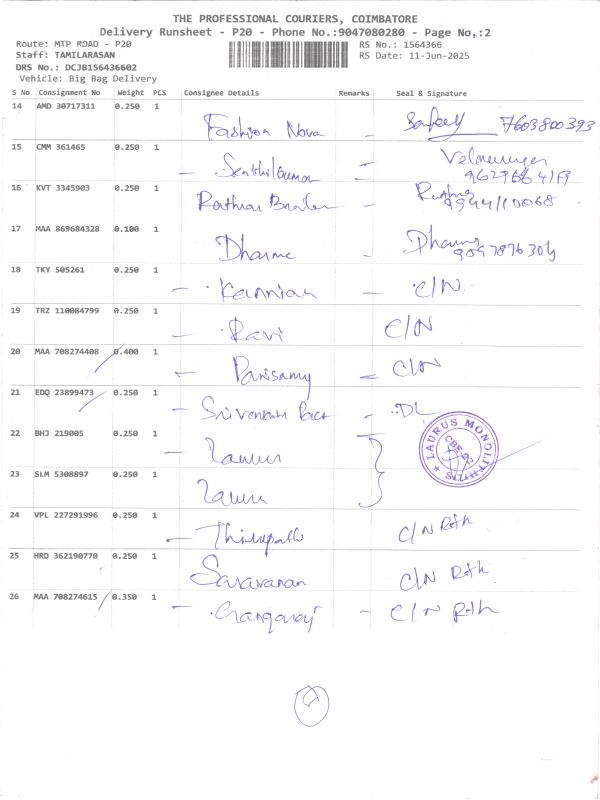 THE PROFESSIONAL COURIERS, COIMBATORE
Delivery Runsheet - P20 - Phone No.:9047080280 - Page No.:2
Route: MTP ROAD - P20 RS No.: 1564366
Staff: TAMILARASAN RS Date: 11-Jun-2025
DRS No.: DCJB156436602
Vehicle: Big Bag Delivery
S No Consignment No Weight PCS Consignee Details Remarks Seal & Signature
14 AMD 30717311 0.250 1
Fashion Nova - 7603800393
15 CMM 361465 0.250 1
- Senthilkumar =
16 KVT 3345903 0.250 1
17 MAA 869684328 0.100 1
Dharme -
18 TKY 505261 0.250 1
- Kannian - C/N.
19 TRZ 110084799 0.250 1
- Ravi C/N
20 MAA 708274408 0.400 1
- Parisamy = C/N
21 EDQ 23899473 0.250 1
- - DL
LAURUS MONOLITHIC
22 BHJ 219005 0.250 1
23 SLM 5308897 0.250 1
24 VPL 227291996 0.250 1
- Thirupathi C/N
25 HRD 362190770 0.250 1
Saravanan C/N
26 MAA 708274615 0.350 1
- Gangaraj - C/N